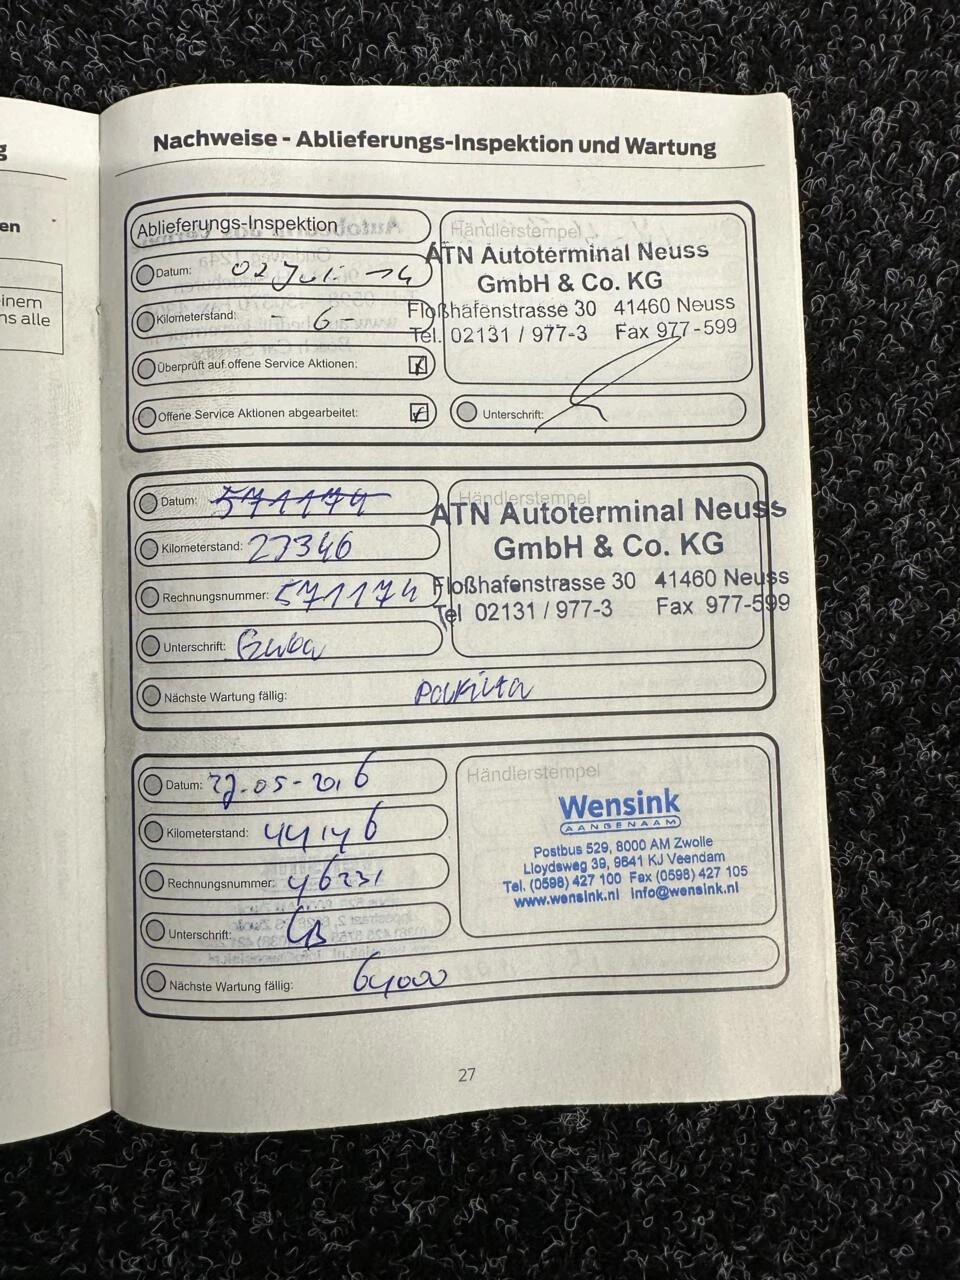 g
en
inem
ns alle
Nachweise - Ablieferungs-Inspektion und Wartung
Ablieferungs-Inspektion
Datum: 02 Juli 14
Kilometerstand: - 6 -
Überprüft auf offene Service Aktionen:
Offene Service Aktionen abgearbeitet:
Händlerstempel
ATN Autoterminal Neuss
GmbH & Co. KG
Floßhafenstrasse 30 41460 Neuss
Tel. 02131 / 977-3 Fax 977-599
Unterschrift:
Datum: 571174
Kilometerstand: 27346
Rechnungsnummer: 571174
Unterschrift:
Händlerstempel
ATN Autoterminal Neuss
GmbH & Co. KG
Floßhafenstrasse 30 41460 Neuss
Tel 02131 / 977-3 Fax 977-599
Nächste Wartung fällig:
Datum: 27-05-2016
Kilometerstand: 44146
Rechnungsnummer: 46231
Unterschrift:
Händlerstempel
Wensink
AANGENAAM
Postbus 529, 8000 AM Zwolle
Lloydsweg 39, 9641 KJ Veendam
Tel. (0598) 427 100 Fax (0598) 427 105
www.wensink.nl info@wensink.nl
Nächste Wartung fällig: 64000
27